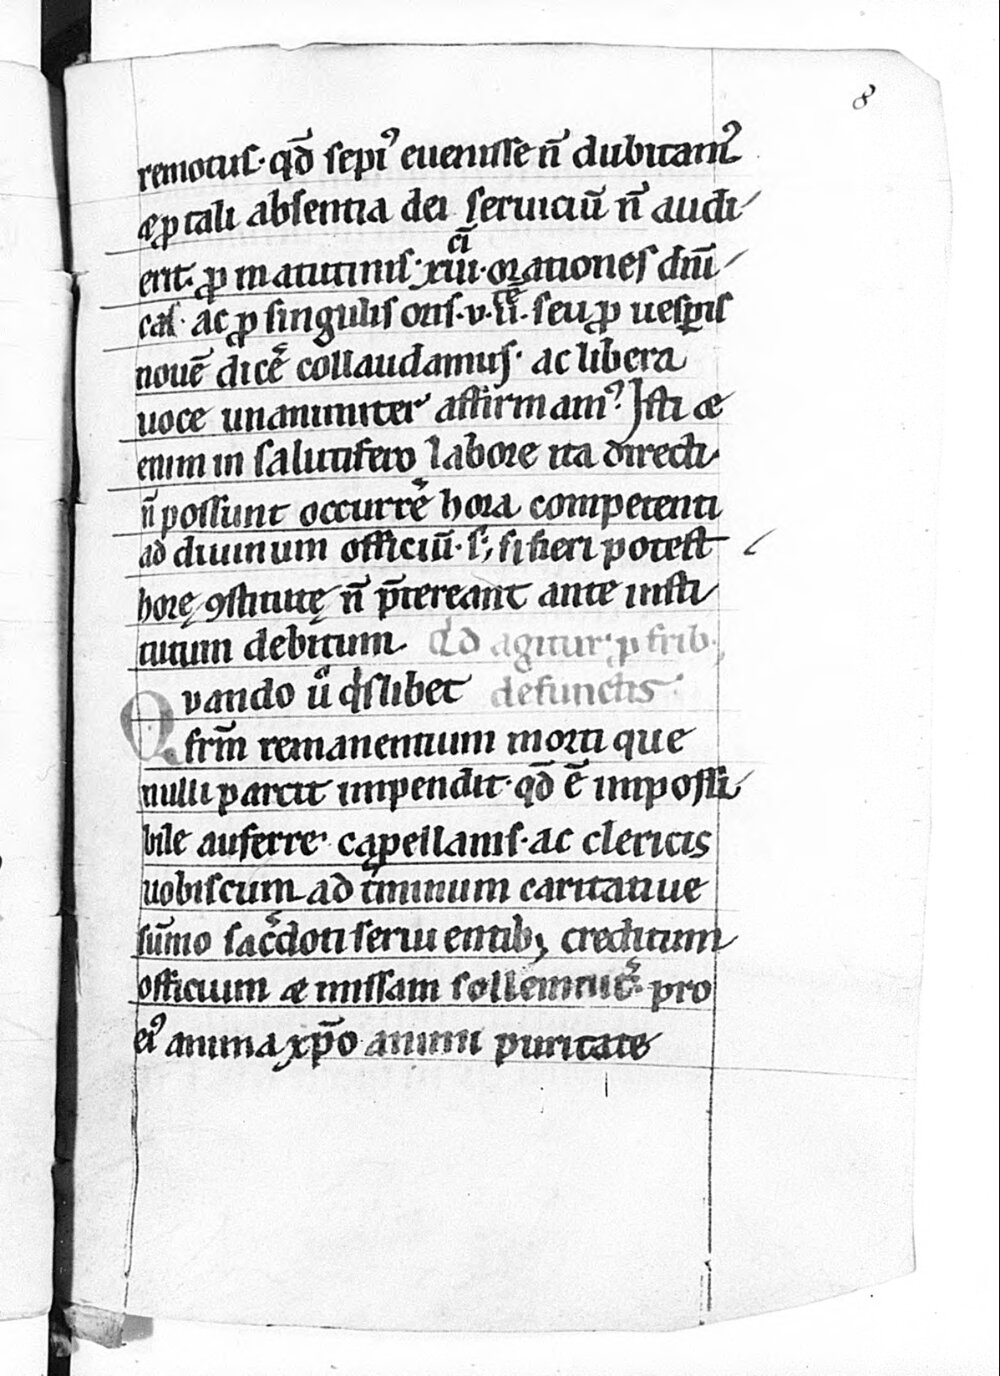 8
remotus· qd̄ sepi⁹ euenisse n̄ dubitam⁹
& p̱ tali absentia dei seruiciū n̄ audi
erit· ꝓ matutinis· xiii^ci· orationes dn̄i
cas· ac ꝓ singulis oris· v·ii^tē· seu ꝓ uesꝑis
nouē dicẽ collaudamus· ac libera
uoce unanimiter affirmam⁹· Isti &
enim in salutifero labore ita directi
n̄ possunt occurrẽ hora competenti
ad diuinum officiū· s; si fieri potest
horę ꝯstitutę n̄ p̄tereant ante insti
tutum debitum. Qd agitur· ꝓ frib;
Quando ů q̇slibet defunctis·
frm̄ remanentium morti que
nulli parcit impendit· qd̄ ē impossi
bile auferre· capellanis· ac clericis
uobiscum ad t̄minum caritatiue
sūmo sac̄doti seruientib; creditum
officium & missam sollemnit̃· pro
ei⁹ anima xp̄o animi puritate